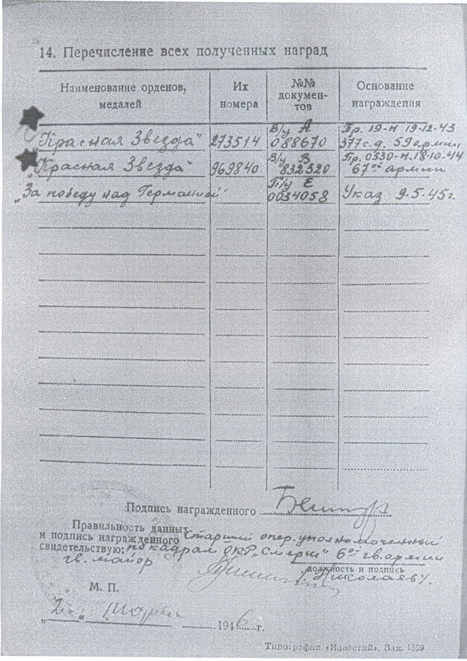 14. Перечисление всех полученных наград
Наименование орденов, медалей
Их номера
№№ документов
Основание награждения
"Красная Звезда" 273514 В/у А 088670 Пр. 19-н 19-12-43 377 с.д. 59 армии
"Красная Звезда" 969840 В/у В 832520 Пр. 0330-н. 18.10.44 67ой армии
"За победу над Германией" П/у Е 0034058 Указ 9-5-45г.
Подпись награжденного
Правильность данных
и подпись награжденного старший опер. уполномоченный
свидетельствую: по кадрам ОКР "Смерш" 6ой гв. армии
гв. майор Николаев
должность и подпись
М. П.
"2" марта 1946 г.
Типография «Известий». Зак. 1559